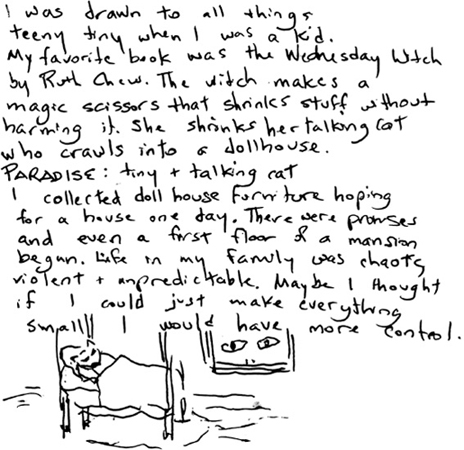 I was drawn to all things
teeny tiny when I was a kid.
My favorite book was the Wednesday Witch
by Ruth Chew. The witch makes a
magic scissors that shrinks stuff without
harming it. She shrinks her talking cat
who crawls into a dollhouse.
PARADISE: tiny + talking cat
I collected doll house furniture hoping
for a house one day. There were promises
and even a first floor of a mansion
begun. Life in my family was chaotic
violent + unpredictable. Maybe I thought
if I could just make everything
small I would have more control.